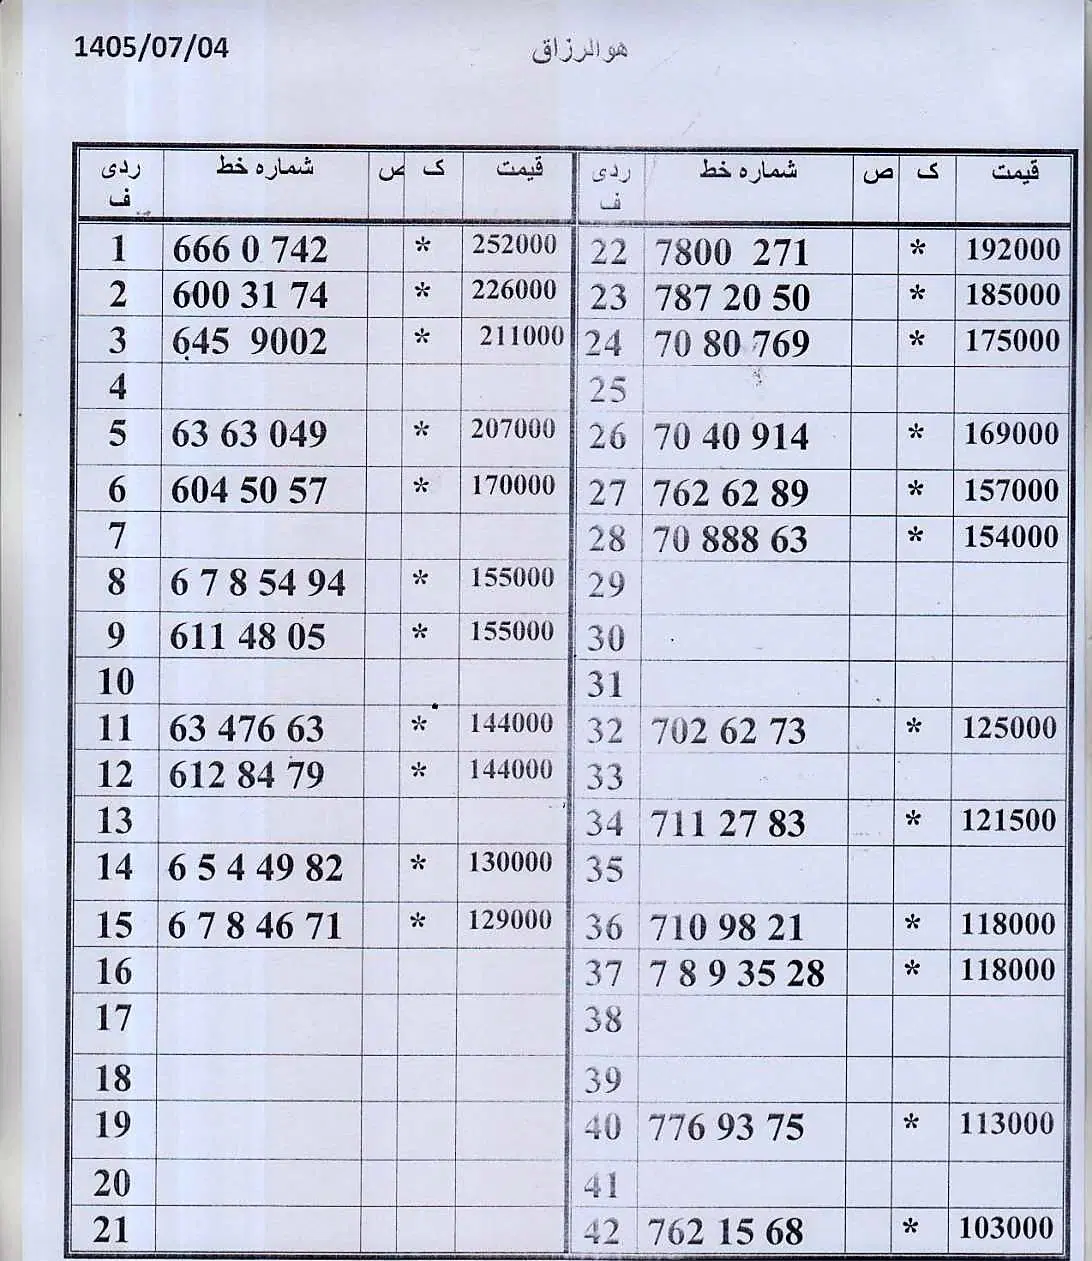 1405/07/04 هوالرزاق
ردیف شماره خط ص ک قیمت ردیف شماره خط ص ک قیمت
1 666 0 742 * 252000 22 7800 271 * 192000
2 600 31 74 * 226000 23 787 20 50 * 185000
3 645 9002 * 211000 24 70 80 769 * 175000
4 25
5 63 63 049 * 207000 26 70 40 914 * 169000
6 604 50 57 * 170000 27 762 62 89 * 157000
7 28 70 888 63 * 154000
8 6 7 8 54 94 * 155000 29
9 611 48 05 * 155000 30
10 31
11 63 476 63 * 144000 32 702 62 73 * 125000
12 612 84 79 * 144000 33
13 34 711 27 83 * 121500
14 6 5 4 49 82 * 130000 35
15 6 7 8 46 71 * 129000 36 710 98 21 * 118000
16 37 7 8 9 35 28 * 118000
17 38
18 39
19 40 776 93 75 * 113000
20 41
21 42 762 15 68 * 103000